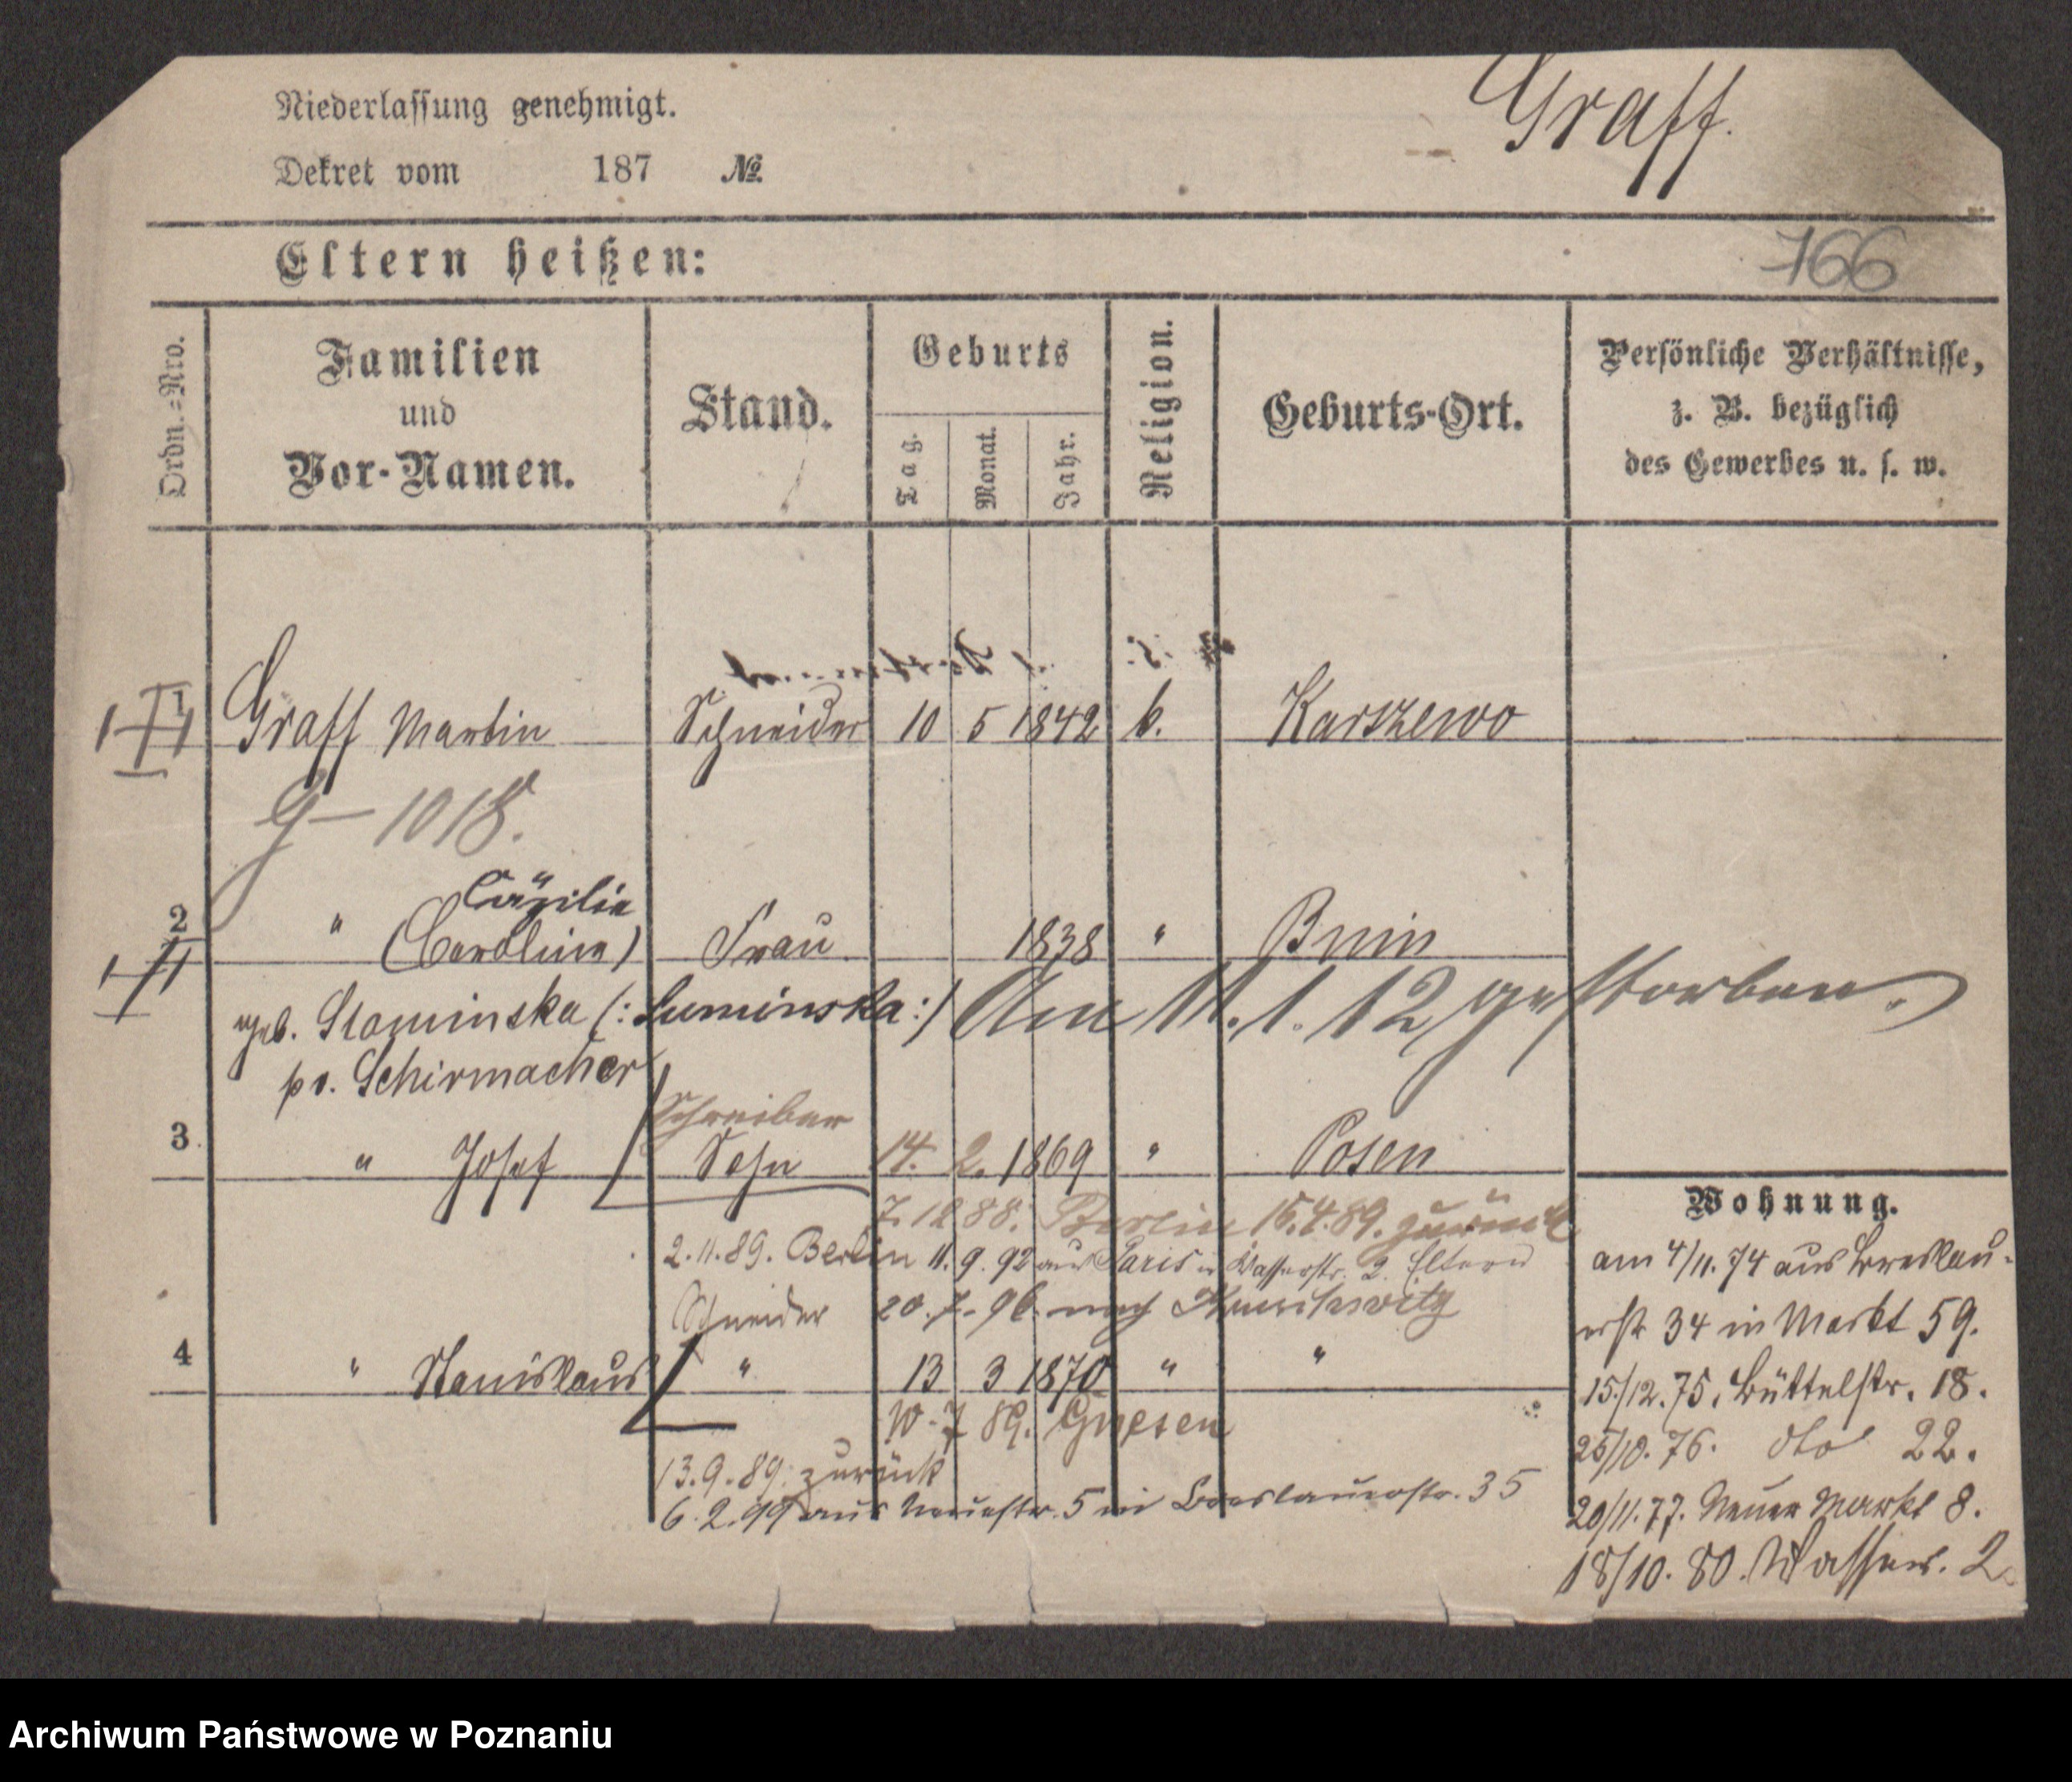 Niederlassung genehmigt.
Graff.
Dekret vom 187 №.
Eltern heißen:
766
Ordn.-Nro.
Familien
und
Vor-Namen.
Stand.
Geburts
Tag.
Monat.
Jahr.
Religion.
Geburts-Ort.
Persönliche Verhältnisse,
z. B. bezüglich
des Gewerbes u. s. w.
1 Graff Martin Schneider 10 5 1842 k. Karszewo
G-1018.
Cäzilie
2 " (Carolina) Frau 1838 " Bnin
geb. Slominska (:Suminska:) Am 11.1.12 gestorben.
pv. Schirmacher
Schreiber
3 " Josef Sohn 14. 2. 1869 " Posen
7.12 88. Berlin 15.4.89. zurück
2.11.89. Berlin 11.9.92 aus Paris in Wasserstr. 2 Eltern
Schneider 20.7.96 nach
4 " Stanislaus " 13 3 1870 " "
10.7 89. Gnesen
13.9.89. zurück
6.2.99 aus Neuestr. 5 in Breslauerstr. 35
Wohnung.
am 4/11.74 aus Breslauerstr 34 in Markt 59.
15/12.75. Büttelstr. 18.
25/10.76. dto 22.
20/11.77. Neuer Markt 8.
18/10.80. Wasserst. 2.
Archiwum Państwowe w Poznaniu